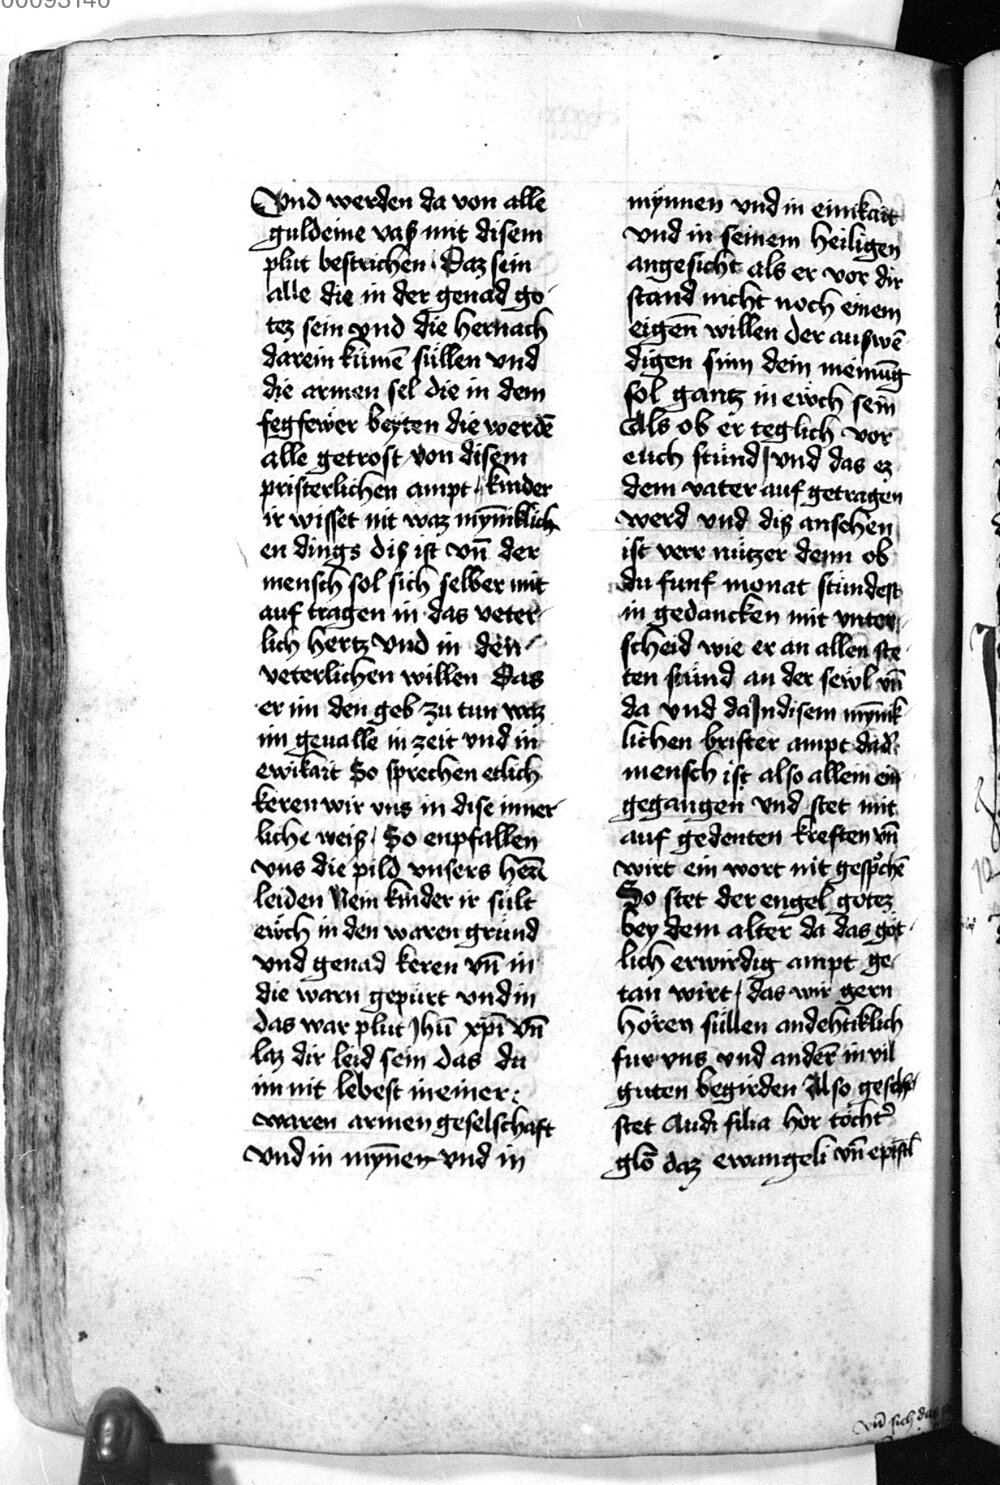 00093140
Vnd werden da von alle
guldeine vaß mit disem
plut bestrichen · Daz sein
alle die in der genad go-
tez sein vnd die hernach
darein kümē süllen vnd
die armen sel die in dem
fegfewer beyten die werdē
alle getrost von disem
pristerlichen ampt / kinder
ir wisset nit waz mȳniklich
en dings diß ist vn̄ der
mensch sol sich selber mit
auf tragen in das veter-
lich hertz vnd in den
veterlichen willen Das
er im den geb zu tun waz
im geualle in zeit vnd in
ewikait So sprechen etlich
keren wir vns in dise inner
liche weiß / So enpfallen
vns die pild vnsers herrē
leiden Nein kinder ir sült
ewch in den waren grund
vnd genad keren vn̄ in
die warn gepürt vnd in
das war plut Jhū xp̄i vn̄
laz dir leid sein das du
im nit lebest in einer
waren armen geselschaft
vnd in mȳnen vnd in
mynnen vnd in einikait
vnd in seinem heiligen
angesicht als er vor dir
stand nicht noch einem
eigen willen der auswē
digen sinn dein meinūg
sol gantz in ewch sein
Als ob er teglich vor
euch stünd / vnd das ez
dem vater auf getragen
werd vnd diß ansehen
ist verr nützer denn ob
du funf monat stündest
in gedancken mit vnter
scheid wie er an allen ste
ten stünd an der sewl vn̄
da vnd da Jn disem mȳnik
lichen brister ampt dad
mensch ist also allein ein
gegangen vnd stet mit
auf gedenten kreften vn̄
wirt ein wort nit gespͦchē
So stet der engel gotez
bey dem alter da das göt
lich erwirdig ampt ge
tan wirt / das wir gern
hören süllen andehtiklich
fur vns vnd anderr in vil
guten begirden Also geschͤ
stet Audi filia hor tochtͤ
glō daz ewangeli vn̄ epistl
vn̄ sich das